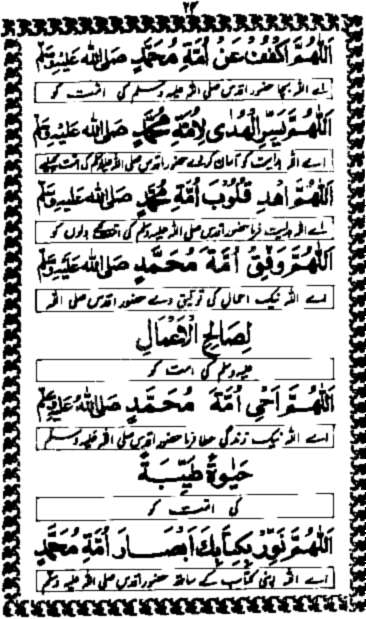 ۲۳
اَللّٰهُمَّ اكْفُفْ عَنْ اُمَّةِ مُحَمَّدٍ صَلَى اللّٰه عَلَيْهِ وَسَلَّم
اے اللہ بچا حضور اقدس صلی اللہ علیہ وسلم کی امت کو
اَللّٰهُمَّ يَسِّرِ الْهُدٰى لِاُمَّةِ مُحَمَّدٍ صَلَى اللّٰه عَلَيْهِ وَسَلَّم
اے اللہ ہدایت کو آسان کردے حضور اقدس صلی اللہ علیہ وسلم کی امت کیلئے
اَللّٰهُمَّ اهْدِ قُلُوْبَ اُمَّةِ مُحَمَّدٍ صَلَى اللّٰه عَلَيْهِ وَسَلَّم
اے اللہ ہدایت فرما حضور اقدس صلی اللہ علیہ وسلم کی امت کے دلوں کو
اَللّٰهُمَّ وَفِّقْ اُمَّةَ مُحَمَّدٍ صَلَى اللّٰه عَلَيْهِ وَسَلَّم
اے اللہ نیک اعمال کی توفیق دے حضور اقدس صلی اللہ
لِصَالِحِ الْاَعْمَالِ
علیہ وسلم کی امت کو
اَللّٰهُمَّ اَحْیِ اُمَّةَ مُحَمَّدٍ صَلَى اللّٰه عَلَيْهِ وَسَلَّم
اے اللہ نیک زندگی عطا فرما حضور اقدس صلی اللہ علیہ وسلم
حَيٰوةً طَيِّبَةً
کی امت کو
اَللّٰهُمَّ نَوِّرْ بِكِتَابِكَ اَبْصَارَ اُمَّةِ مُحَمَّدٍ
اے اللہ اپنی کتاب کے ساتھ حضور اقدس صلی اللہ علیہ وسلم